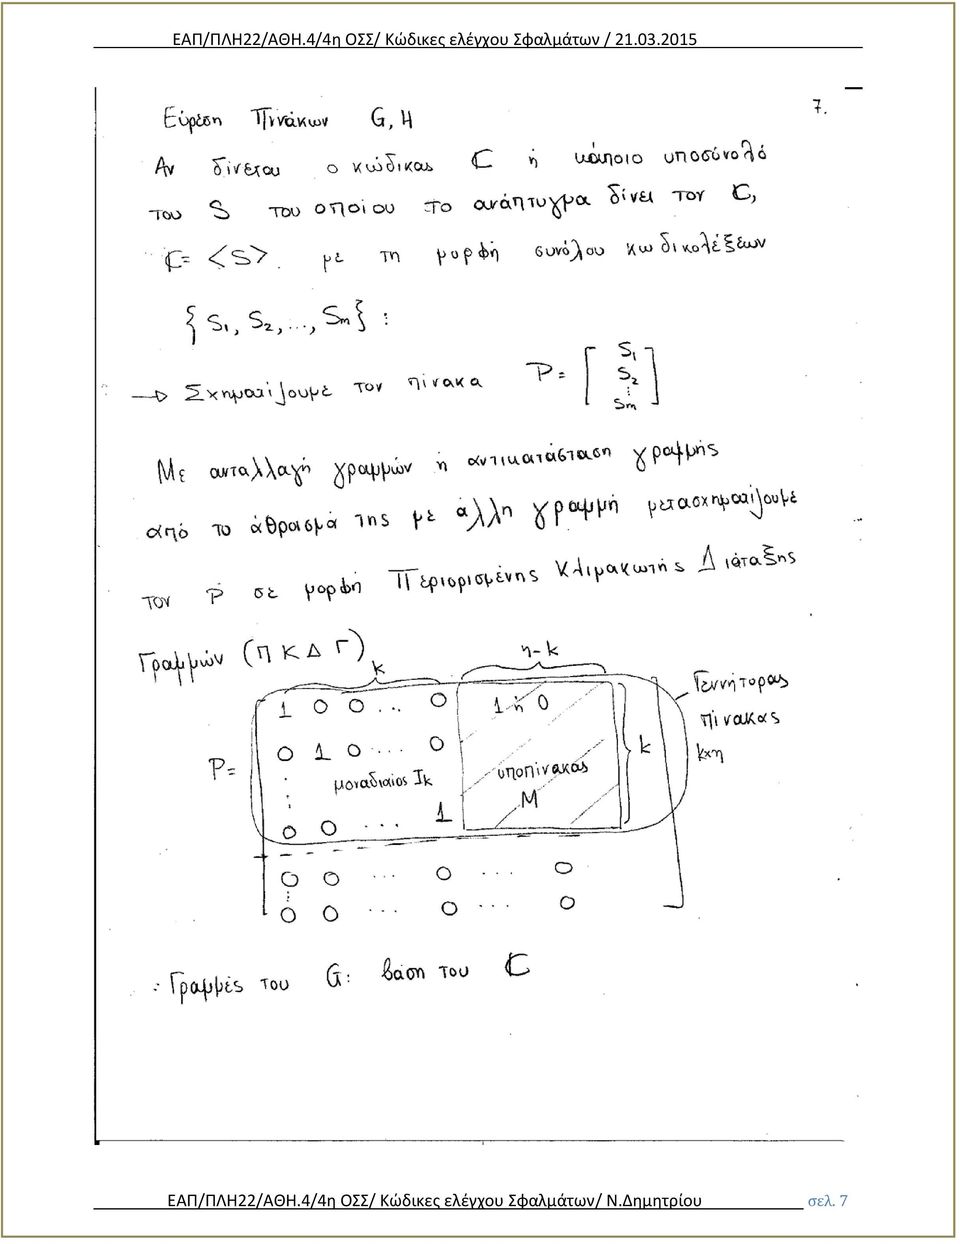 ΕΑΠ/ΠΛΗ22/ΑΘΗ.4/4η ΟΣΣ/ Κώδικες ελέγχου Σφαλμάτων / 21.03.2015
7.
Εύρεση Πινάκων G, H
Αν δίνεται ο κώδικας C ή κάποιο υποσύνολό
του S του οποίου το ανάπτυγμα δίνει τον C,
C= <S>. με τη μορφή συνόλου κωδικολέξεων
{ S1, S2, ..., Sm } :
→ Σχηματίζουμε τον πίνακα P = [ S1
S2
⋮
Sm ]
Με ανταλλαγή γραμμών ή αντικατάσταση γραμμής
από το άθροισμά της με άλλη γραμμή μετασχηματίζουμε
τον P σε μορφή Περιορισμένης Κλιμακωτής Διάταξης
Γραμμών (ΠΚΔΓ)
k n-k
1 0 0 ... 0 1 ή 0
Γεννήτορας
πίνακας
k×n
P= 0 1 0 ... 0 k
⋮ μοναδιαίος Ik υποπίνακας
M
0 0 ... 1
0 0 ... 0 ... 0
⋮
0 0 ... 0 ... 0
∴ Γραμμές του G: βάση του C
ΕΑΠ/ΠΛΗ22/ΑΘΗ.4/4η ΟΣΣ/ Κώδικες ελέγχου Σφαλμάτων/ Ν.Δημητρίου σελ. 7